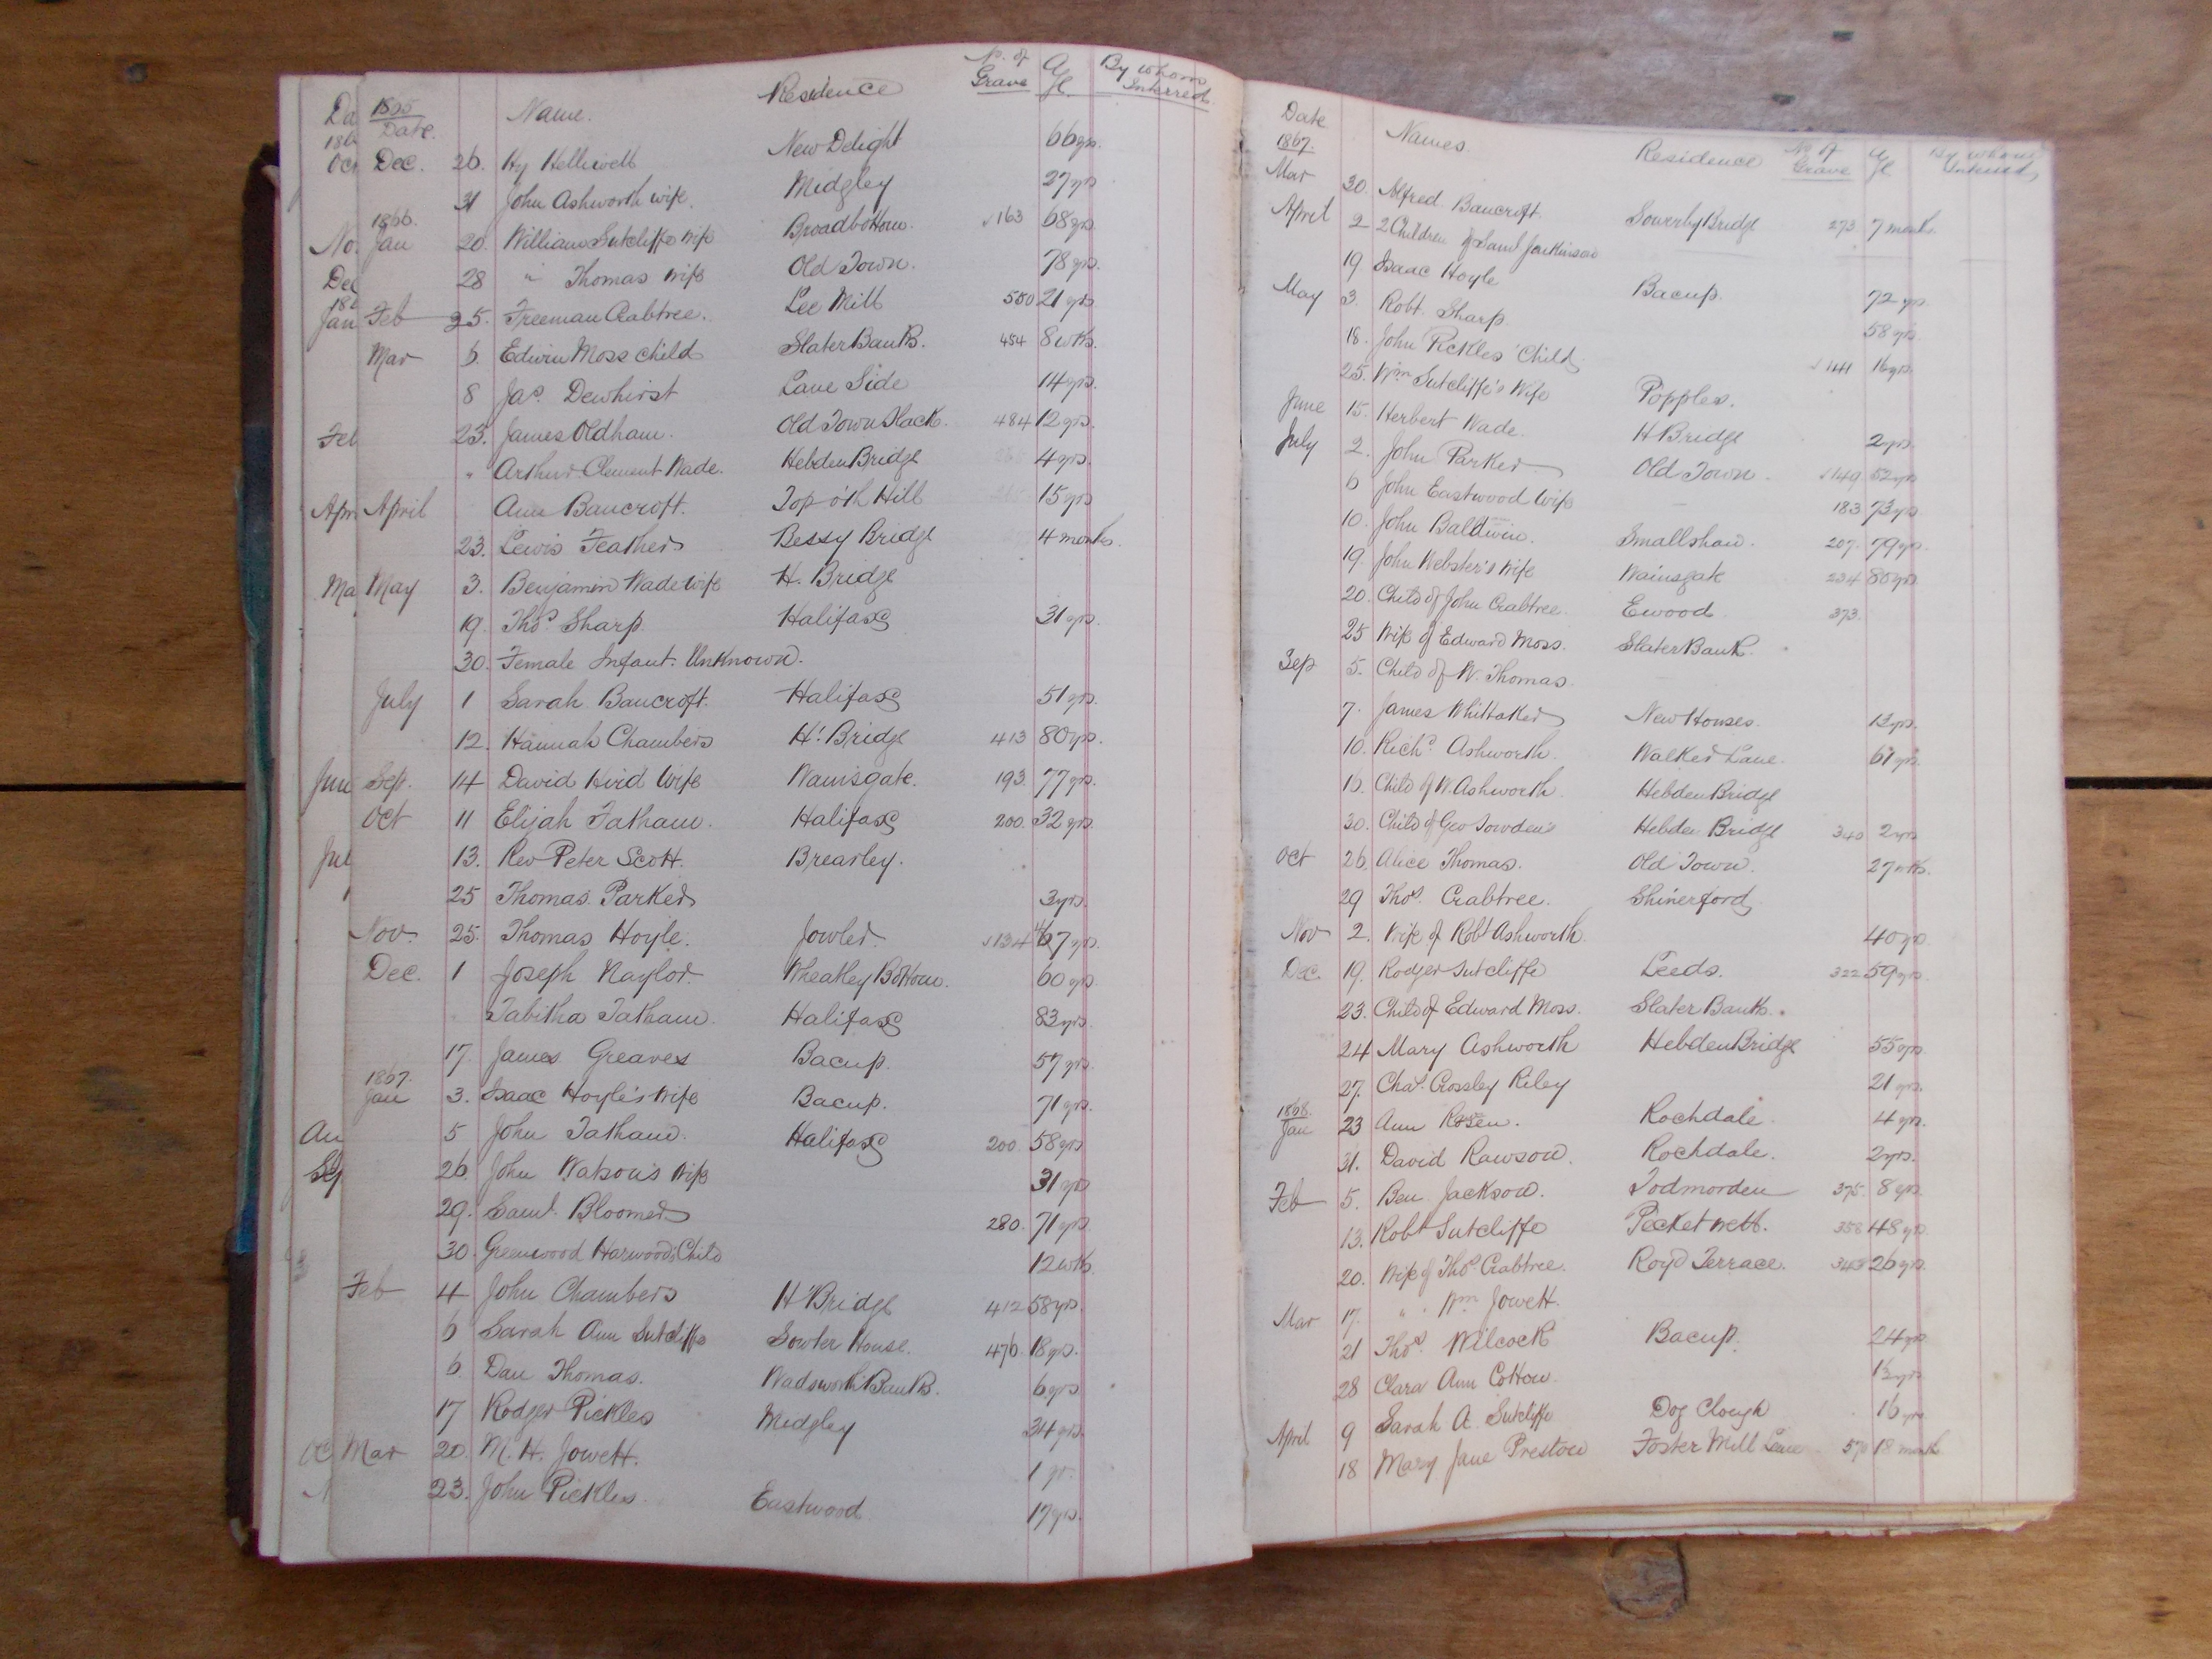 1865 Date. Name. Residence No. of Grave Age By whom Interred.
Dec. 26. Hy Helliwell New Delight 66 yrs.
31 John Ashworth wife. Midgley 27 yrs
1866.
Jan 20. William Sutcliffe Wife Broadbottom. 163 68 yrs
28 " Thomas Wife Old Town. 78 yrs.
Feb 25. Freeman Crabtree. Lee Mill 580 21 yrs
Mar 6. Edwin Moss child Slater Bank. 454 8 wks.
8 Jas. Dewhirst Lane Side 14 yrs.
23. James Oldham. Old Town Slack. 484 12 yrs.
" Arthur Clement Wade. Hebden Bridge 4 yrs.
April Ann Bancroft. Top o'th Hill 15 yrs
23. Lewis Feather Bessy Bridge 4 months.
May 3. Benjamin Wade wife H. Bridge
19. Thos. Sharp Halifax 31 yrs.
30. Female Infant. Unknown.
July 1 Sarah Bancroft. Halifax 51 yrs.
12. Hannah Chambers H. Bridge 413 80 yrs.
Sep. 14 David Hird Wife Wainsgate. 193 77 yrs.
Oct 11 Elijah Tatham. Halifax 200. 32 yrs.
13. Rev Peter Scott. Brearley.
25 Thomas Parker 3 yrs.
Nov. 25. Thomas Hoyle. Jowler. 134 67 yrs.
Dec. 1 Joseph Naylor. Wheatley Bottom. 60 yrs
Tabitha Tatham. Halifax 83 yrs.
17. James Greaves Bacup. 57 yrs.
1867.
Jan 3. Isaac Hoyle's Wife Bacup. 71 yrs.
5 John Tatham. Halifax 200 58 yrs
26. John Watson's Wife 31 yrs
29. Saml. Bloomer 280. 71 yrs.
30. Greenwood Harwoods Child 12 wks.
Feb 4 John Chambers H Bridge 412 58 yrs.
6 Sarah Ann Sutcliffe Sowter House. 476. 18 yrs.
6. Dan Thomas. Wadsworth Banks. 6 yrs
17 Rodger Pickles Midgley 34 yrs.
Mar 20. M. H. Jowett. 1 yr.
23. John Pickles. Eastwood 17 yrs.
Date Names. Residence No of Grave Age By whom Interred
1867.
Mar 30. Alfred Bancroft. Sowerby Bridge 273 7 months.
April 2 2 Children of Saml Jenkinson
19. Isaac Hoyle Bacup. 72 yrs.
May 3. Robt. Sharp 58 yrs
18. John Pickles' Child 441 16 yrs.
25. Wm Sutcliffe's Wife Popples.
June 15. Herbert Wade. H Bridge 2 yrs.
July 2. John Parker Old Town. 149. 52 yrs
6 John Eastwood Wife 183 73 yrs
10. John Baldwin. Smallshaw. 207. 79 yrs.
19. John Webster's Wife Wainsgate 234 80 yrs
20. Child of John Crabtree. Ewood. 373.
25 Wife of Edward Moss. Slater Bank.
Sep 5. Child of W. Thomas
7. James Whittaker New Houses. 13 yrs.
10. Richd. Ashworth. Walker Lane. 61 yrs.
16. Child of W. Ashworth. Hebden Bridge
30. Child of Geo Sowden's Hebden Bridge 340 2 yrs
Oct 26. Alice Thomas. Old Town. 27 wks.
29 Thos. Crabtree. Shinerford
Nov 2. Wife of Robt Ashworth 40 yrs
Dec. 19. Rodger Sutcliffe Leeds. 322 59 yrs
23. Child of Edward Moss. Slater Bank.
24 Mary Ashworth Hebden Bridge 55 yrs
27. Chas. Crossley Riley 21 yrs.
1868.
Jan 23 Ann Rosen. Rochdale. 4 yrs.
31. David Rawson. Rochdale. 2 yrs.
Feb 5. Ben Jackson. Todmorden 375. 8 yrs
13. Robt Sutcliffe Pecket Well. 358 48 yrs
20. Wife of Thos Crabtree. Royd Terrace. 26 yrs.
Mar 17. " " Wm Jowett.
21 Thos. Wilcock Bacup. 24 yrs
28 Clara Ann Cotton. yrs
April 9 Sarah A. Sutcliffe Dog Clough 16 yrs
18 Mary Jane Preston Foster Mill Lane 570 18 month